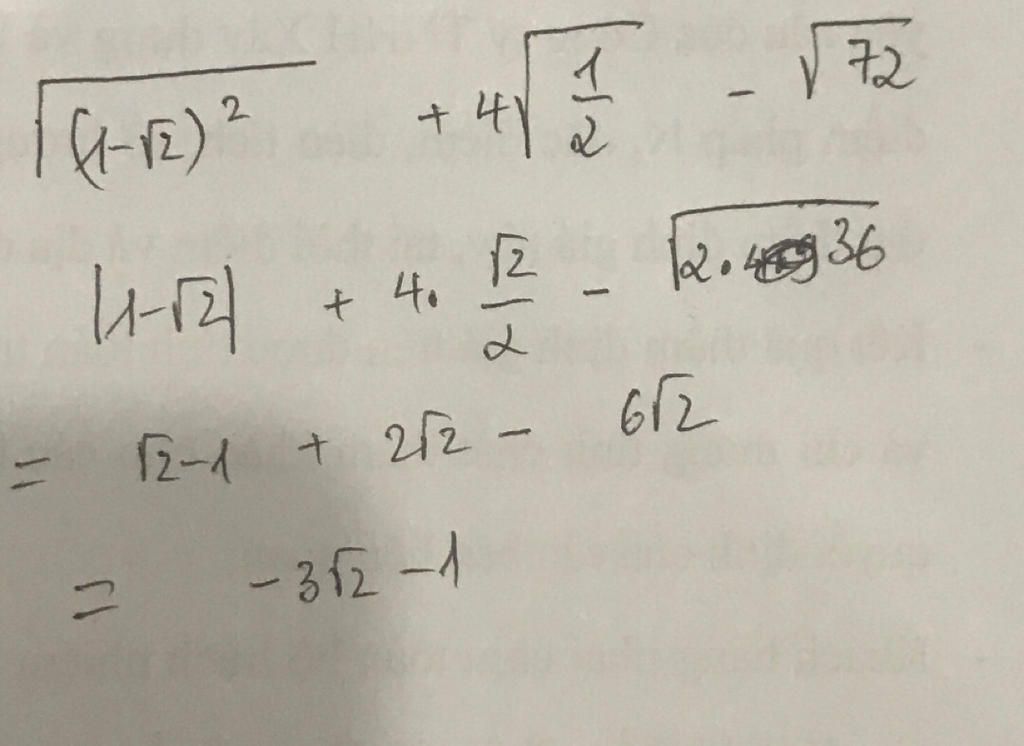 √(1-√2)² + 4√1/2 - √72
|1-√2| + 4. √2/2 - √2.36
= √2-1 + 2√2 - 6√2
= -3√2 -1